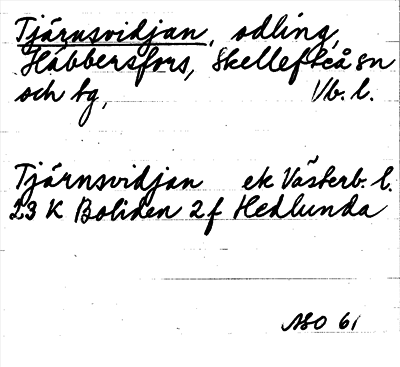 Tjärnsvidjan, odling,
Häbbersfors, Skellefteå sn
och tg, Vb. l.
Tjärnsvidjan ek Västerb. l.
23 K Boliden 2 f Hedlunda
NSO 61